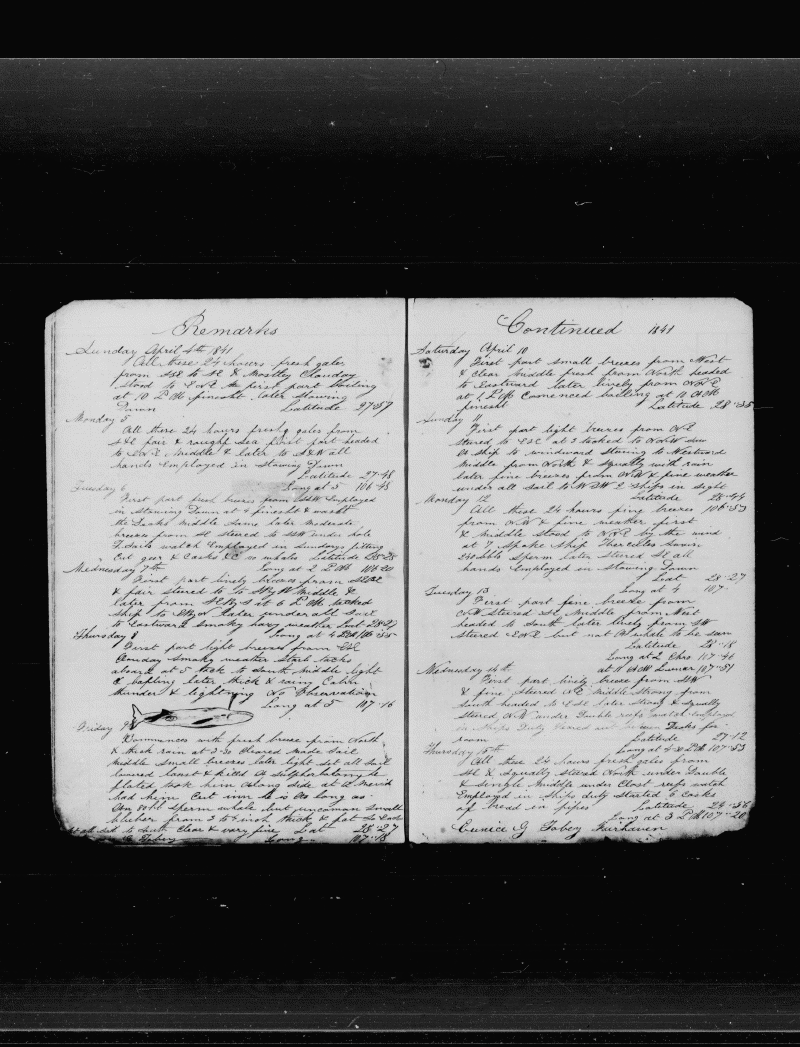 Remarks
Sunday April 4th 1841
All these 24 hours fresh gales
from SSE to SE & Mostley Clouday
Stood to ENE the first part boiling
at 10 PM finesht later Stowing
Down Latitude 27-57
Monday 5
All these 24 hours fresh gales from
SSE fair & rough Sea first part headed
to ENE Middle & later to all
hands Employed in Stowing Down
Latitude 27-48
Long at 3 106-45
Tuesday 6
First part fresh breeze from SSW Employed
in Stowing Down at 4 finesht & washt
the Decks Middle Same later Moderate
breezes from SE steered to SSW under hole
Topsails watch Employed in Sundrys fitting
Cut gear & Casks &C no whales Latitude 28-28
Wednesday 7th Long at 2 PM 106-20
First part lively breezes from
& fair stered to to Middle &
later from at 6 PM tacked
Ship to later under all Sail
to Eastward Smoky hazy weather Lat 28-27
Thursday 8 Long at 4
First part light breeses from ESE
Clouday Smoky weather Starb tacks
aboard at 5 tack to South Middle light
& later thick & rainy Calm
thunder & lightning No Observation
Long at 5 107-16
Friday 9th
Commences with fresh breeze from North
& thick rain at 3-30 Cleared Made Sail
Middle Small breezes later light set all Sail
lowered boat & killed A
took him Along Side at
had him Cut inn he is As long as
An 80bbl Sperm whale but uncoman Small
blubber from 3 to 6 inch thick & fat
to South Clear & vary fine Lat 28-27
Tobey Long 107-18
Continued 1841
Saturday April 10
First part small breezes from West
& Clear Middle fresh from North headed
to Eastward later lively from NNE
at 1 PM Comenced bailing at 10 AM
finesht Latitude 28-35
Sunday 11
First part light breezes from NE
stered to ESE at 3 tacked to NNW Saw
A Ship to windward Steering to Westward
Middle from North & Squally with rain
later fine breezes from NW & fine weather
under all Sail to WSW 2 Ships in sight
Monday 12 Latitude 28-44
All these 24 hours fine breezes 106-53
from NW & fine weather first
& Middle Stood to NNE by the wind
at 7 Spoke Ship Hercules
240 bbls Sperm later Stered SE all
hands Employed in Stowing Down
Lat 28-27
Tuesday 13 Long at 4 107-
First part fine breeze from
NW Steered SE Middle from West
headed to South later lively from SW
stered ENE but not A whale to be seen
Latitude 28-18
Long at 2 107-46
Wednesday 14th at 9 AM Lunar 107-51
First part lively breeze from SSW
& fine Stered NE Middle Strong from
South headed to ESE later Strong & Squally
Stered NW under Double reefs watch employed
in Ships Duty Decks for
room Latitude 27-12
Thursday 15th Long at 4-30 PM 107-53
All these 24 hours fresh gales from
SSE & Squally Stered North under Double
& Single Middle under Close reefs watch
Employed in Ships duty Started 6 Casks
of bread in pipes Latitude 24-56
Long at 3 PM 107-20
Eunice G Tobey Fairhaven